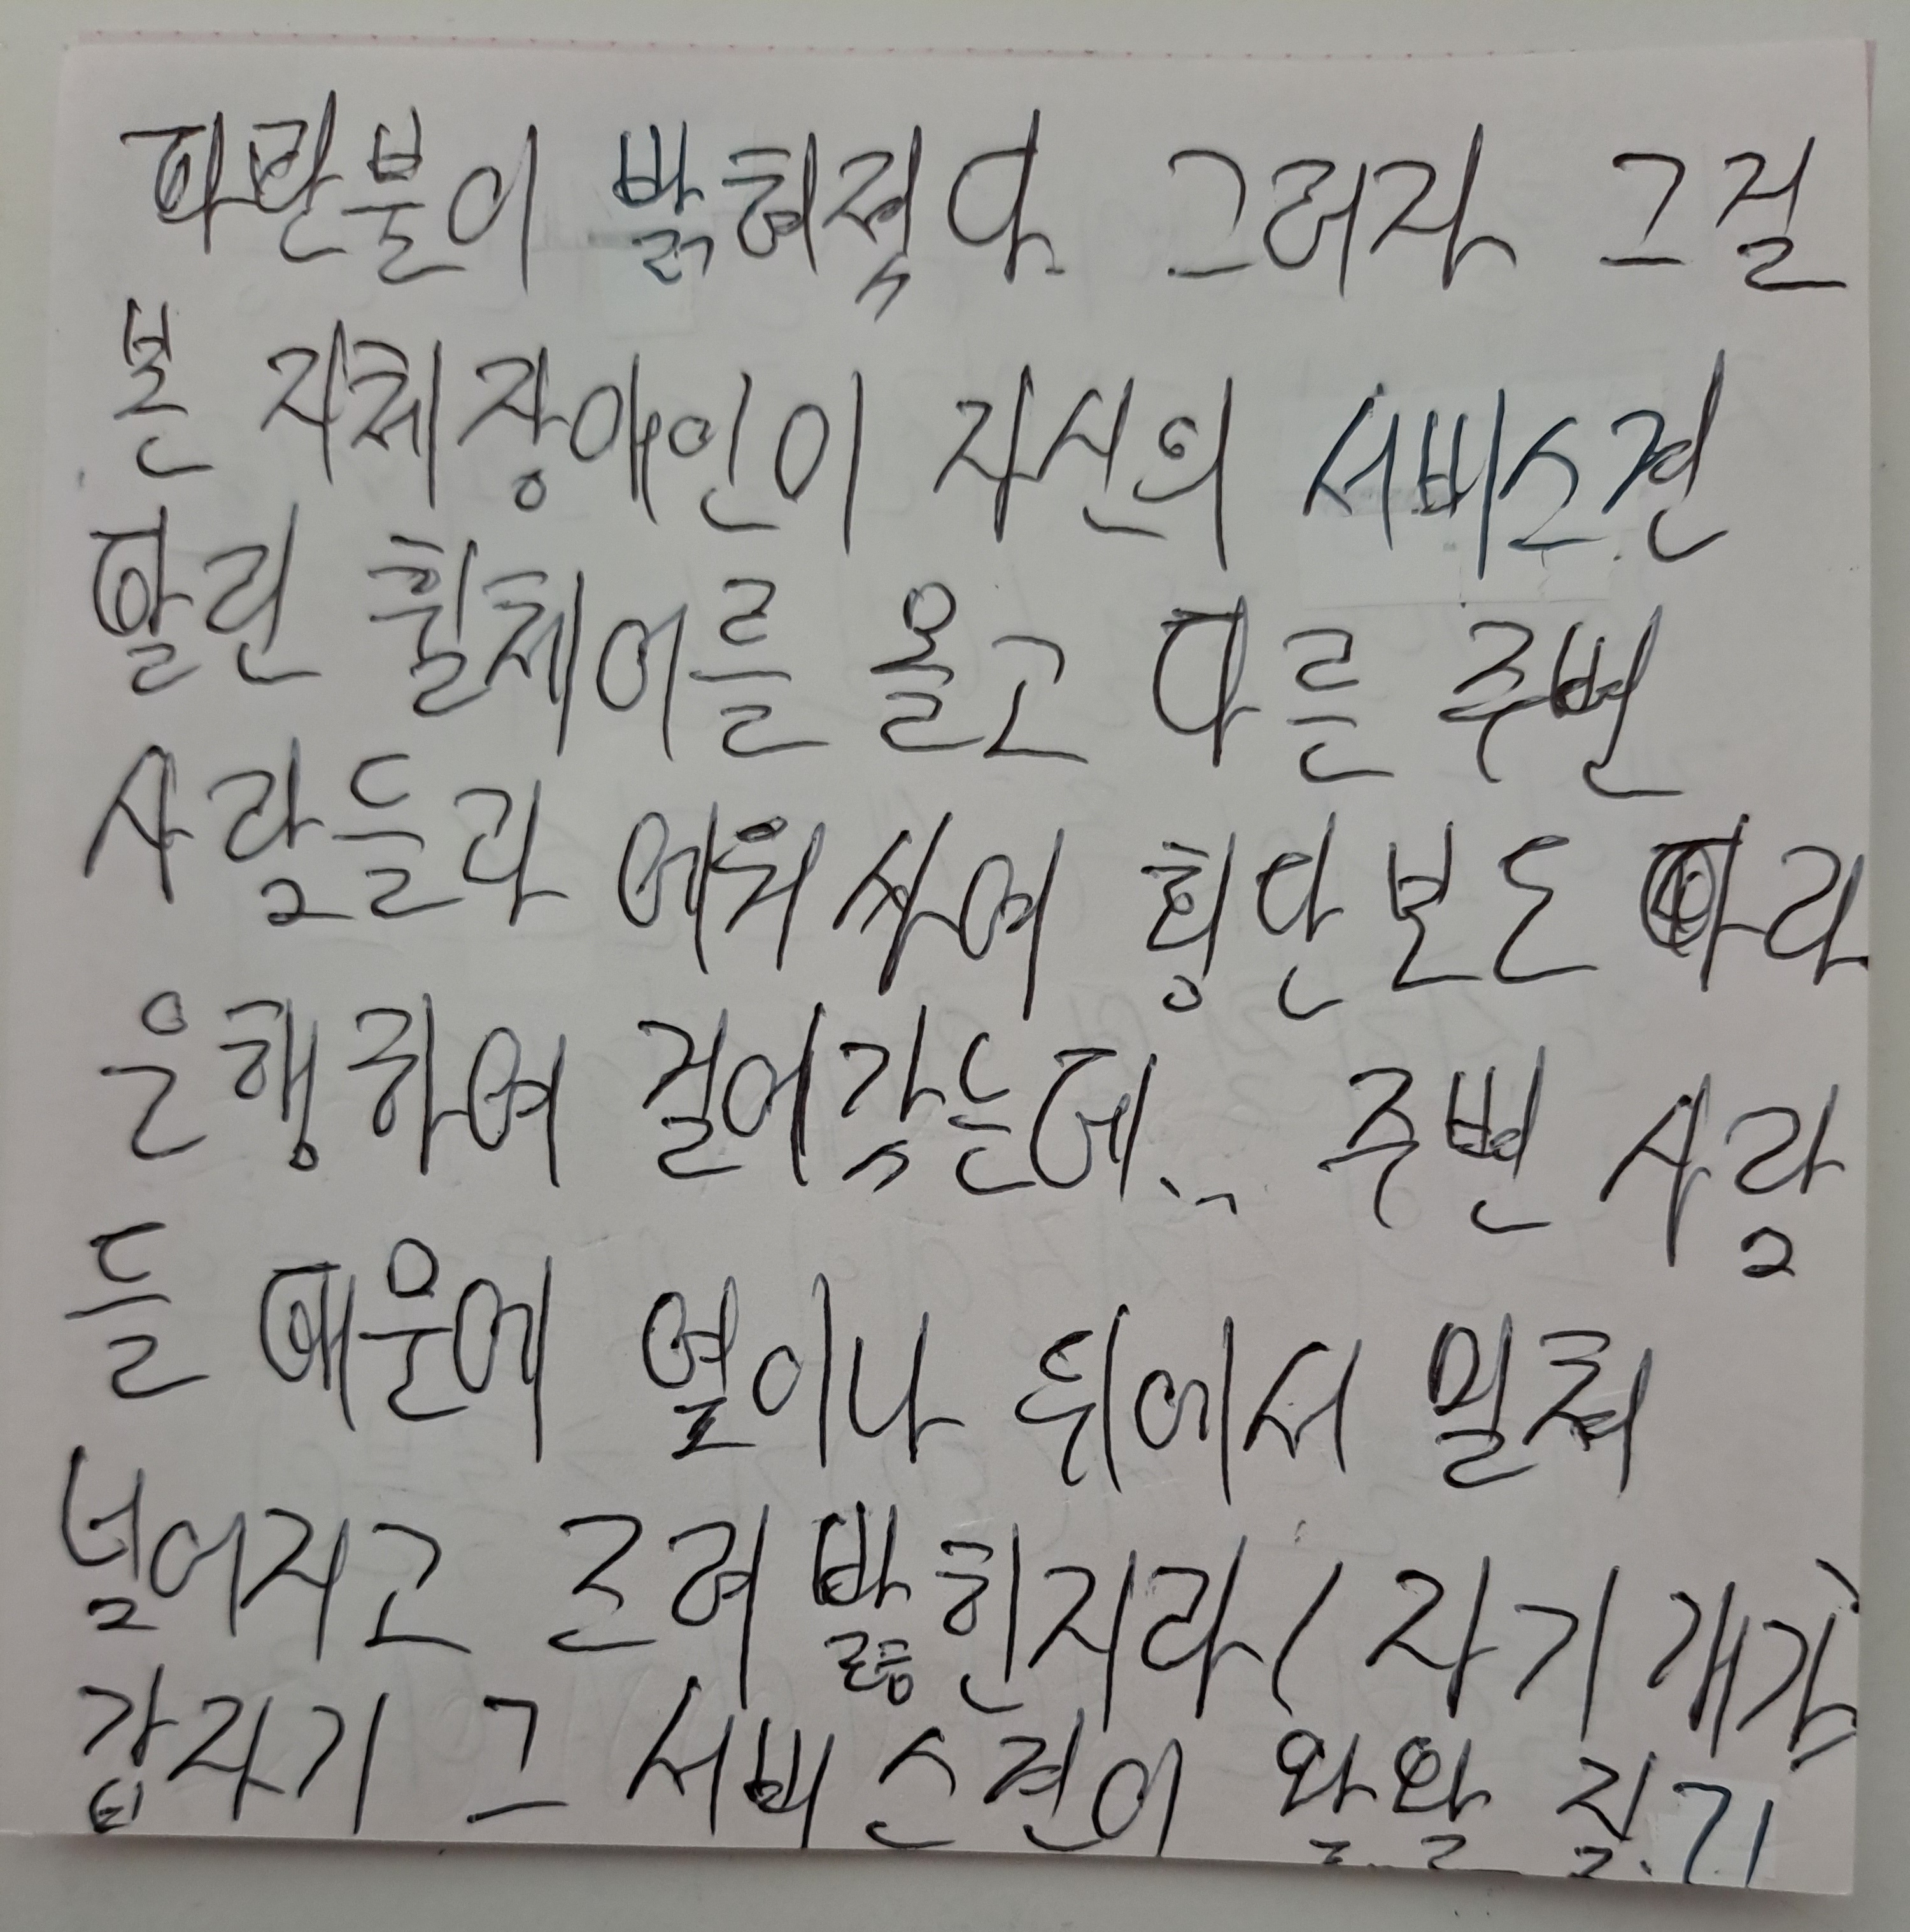 파란불이 밝혀젔다 그러자 그걸
본 지체장애인이 자신의 서비스견
딸린 휠체어를 몰고 다른 주변
사람들과 에워싸여 횡단보도 따라
운행하여 걸어갔는데... 주변 사람
들 때문에 옆이나 뒤에서 밀쳐
넘어지고 그려 밟힌지라 ( 자기 개가)
갑자기 그 서비스견이 왈왈 짖기